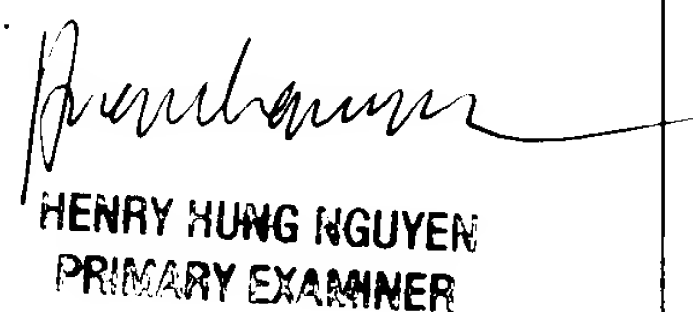 HENRY HUNG NGUYEN
PRIMARY EXAMINER